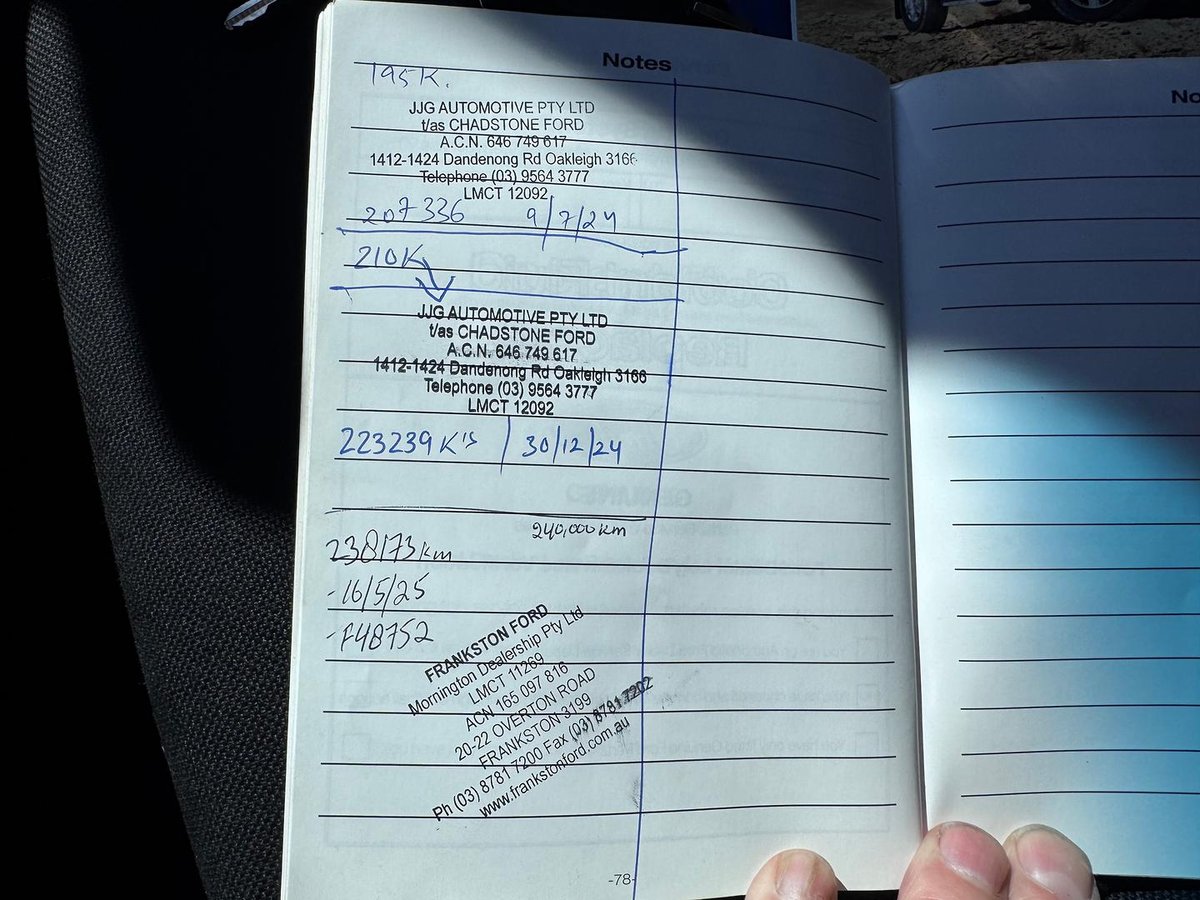 Notes
195K.
JJG AUTOMOTIVE PTY LTD
t/as CHADSTONE FORD
A.C.N. 646 749 617
1412-1424 Dandenong Rd Oakleigh 3166
Telephone (03) 9564 3777
LMCT 12092
207336 9/7/24
210K
JJG AUTOMOTIVE PTY LTD
t/as CHADSTONE FORD
A.C.N. 646 749 617
1412-1424 Dandenong Rd Oakleigh 3166
Telephone (03) 9564 3777
LMCT 12092
223239K's 30/12/24
240,000km
238173km
-16/5/25
-F48752
FRANKSTON FORD
Mornington Dealership Pty Ltd
LMCT 11269
ACN 165 097 816
20-22 OVERTON ROAD
FRANKSTON 3199
Ph (03) 8781 7200 Fax (03) 8781 7202
www.frankstonford.com.au
-78-
No